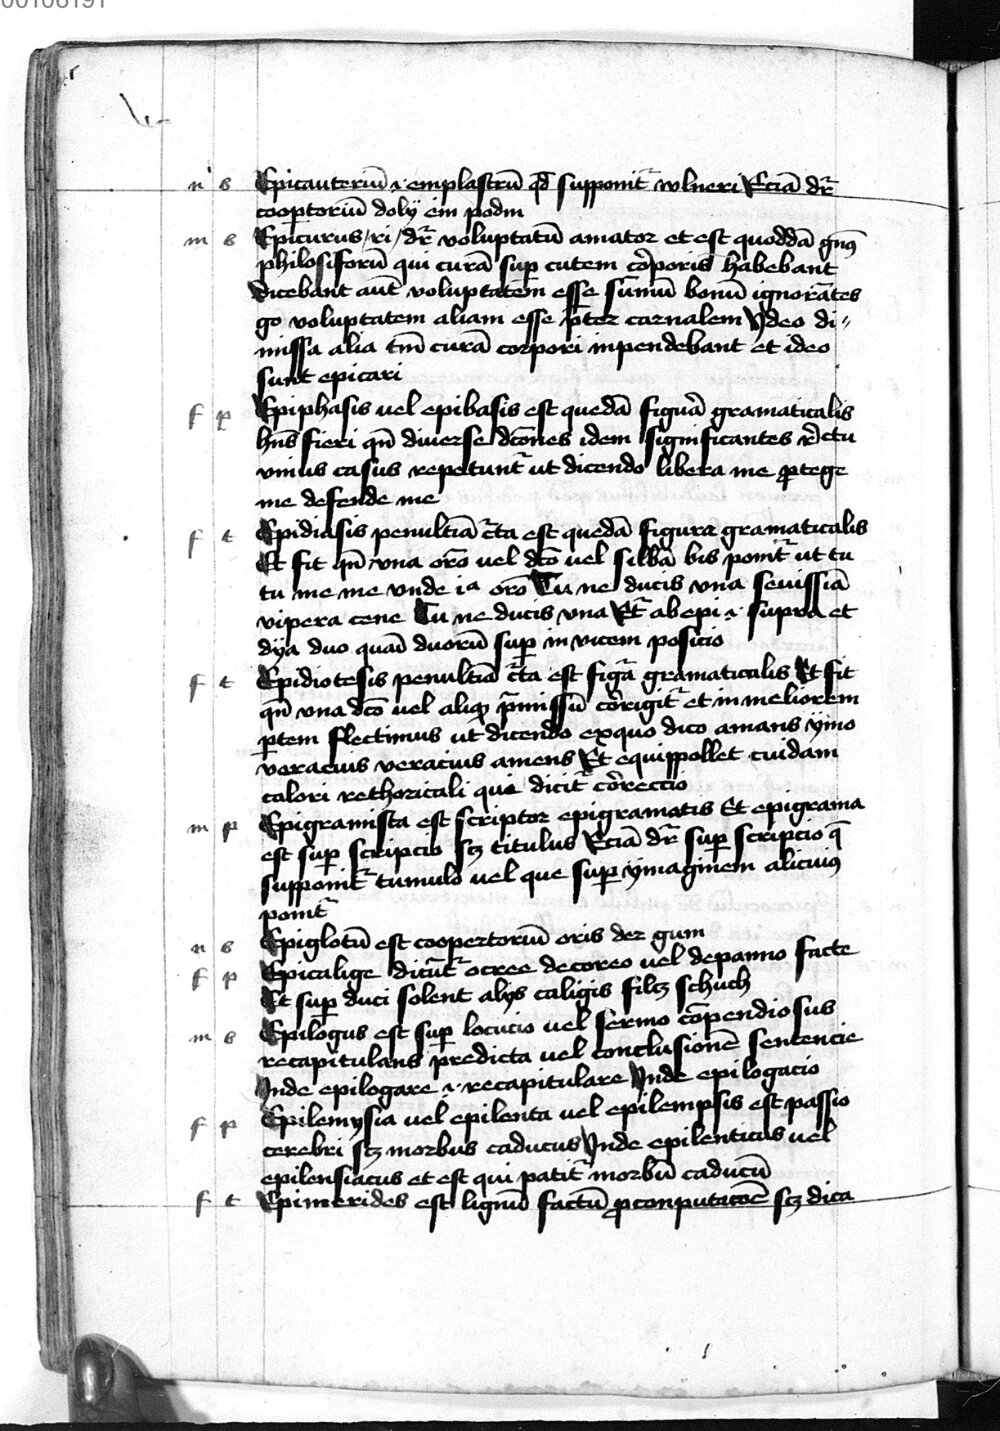 00106191
n s Epicauteriū .i. emplastrū qd supponit̉ vlneri Eciā dr̄
coopertoriū doly em podm
m s Epicurus /ri/ dr̄ voluptatū amator et est quoddā gn9
philosiforū qui curā sup cutem cōrporis habebant
dicebant aūt voluptatem esse sūmū bonū ignorātes
go voluptatem aliam esse p̄ter carnalem Ydeo di〃
missa alia tm̄ curā corpori inpendebant et ideo
sunt epicari
f p Epiphasis uel epibasis est quedā figurā gramaticalis
hn̄s fieri qn̄ diuerse dc̄ones idem significantes
vnius casus repetunt̉ ut dicendo libera me ꝓtege
me defende me
f t Epidiasis penultīa c̄ta est quedā figura gramaticalis
Et fit qn̄ vna orō vel dc̄o vel sillbā bis ponit̉ ut tu
tu me me vnde iᵃ orō Tu ne ducis vna seuissiā
vipera cene Tu ne ducis vna Et̉ ab epi .i. supra et
dya duo quāi duorū sup in vicem posicio
f t Epidiotesis penultīa c̄ta est figr̄a gramaticalis Et fit
qn̄ vna dc̄o vel aliqꝫ p̄missū cōrrigit̉ et in meliorem
ptem flectimus ut dicendo exquo dico amans ymo
veracius veracius amens Et equippollet cuidam
calori rethoricali qui dicit̉ cōreccio
m p Epigramista est scriptor epigramatis Et epigrama
est sup scripcio sꝫ titulus Eciā dr̄ sup scripcio q̄
supponit̉ tumulo vel que sup ymaginem alicui9
ponit̉
n s Epiglotū est coopertoriū oris der gum
f p Epicalige dicūt̉ ocree decoreo vel depanno facte
Et sup duci solent alys caligis filtꝫ schuch
m s Epilogus est sup locucio vel sermo cōpendiosus
recapitulans predicta vel conclusionē sentencie
Inde epilogare .i. recapitulare Inde epilogacio
f p Epilemysia vel epilenta vel epilempsis est passio
cerebri sꝫ morbus caducus Inde epilenticus vel
epilensiacus et est qui patit̉ morbū caducū
f t Epimerides est lignū factū ꝓ computacōe sꝫ dica